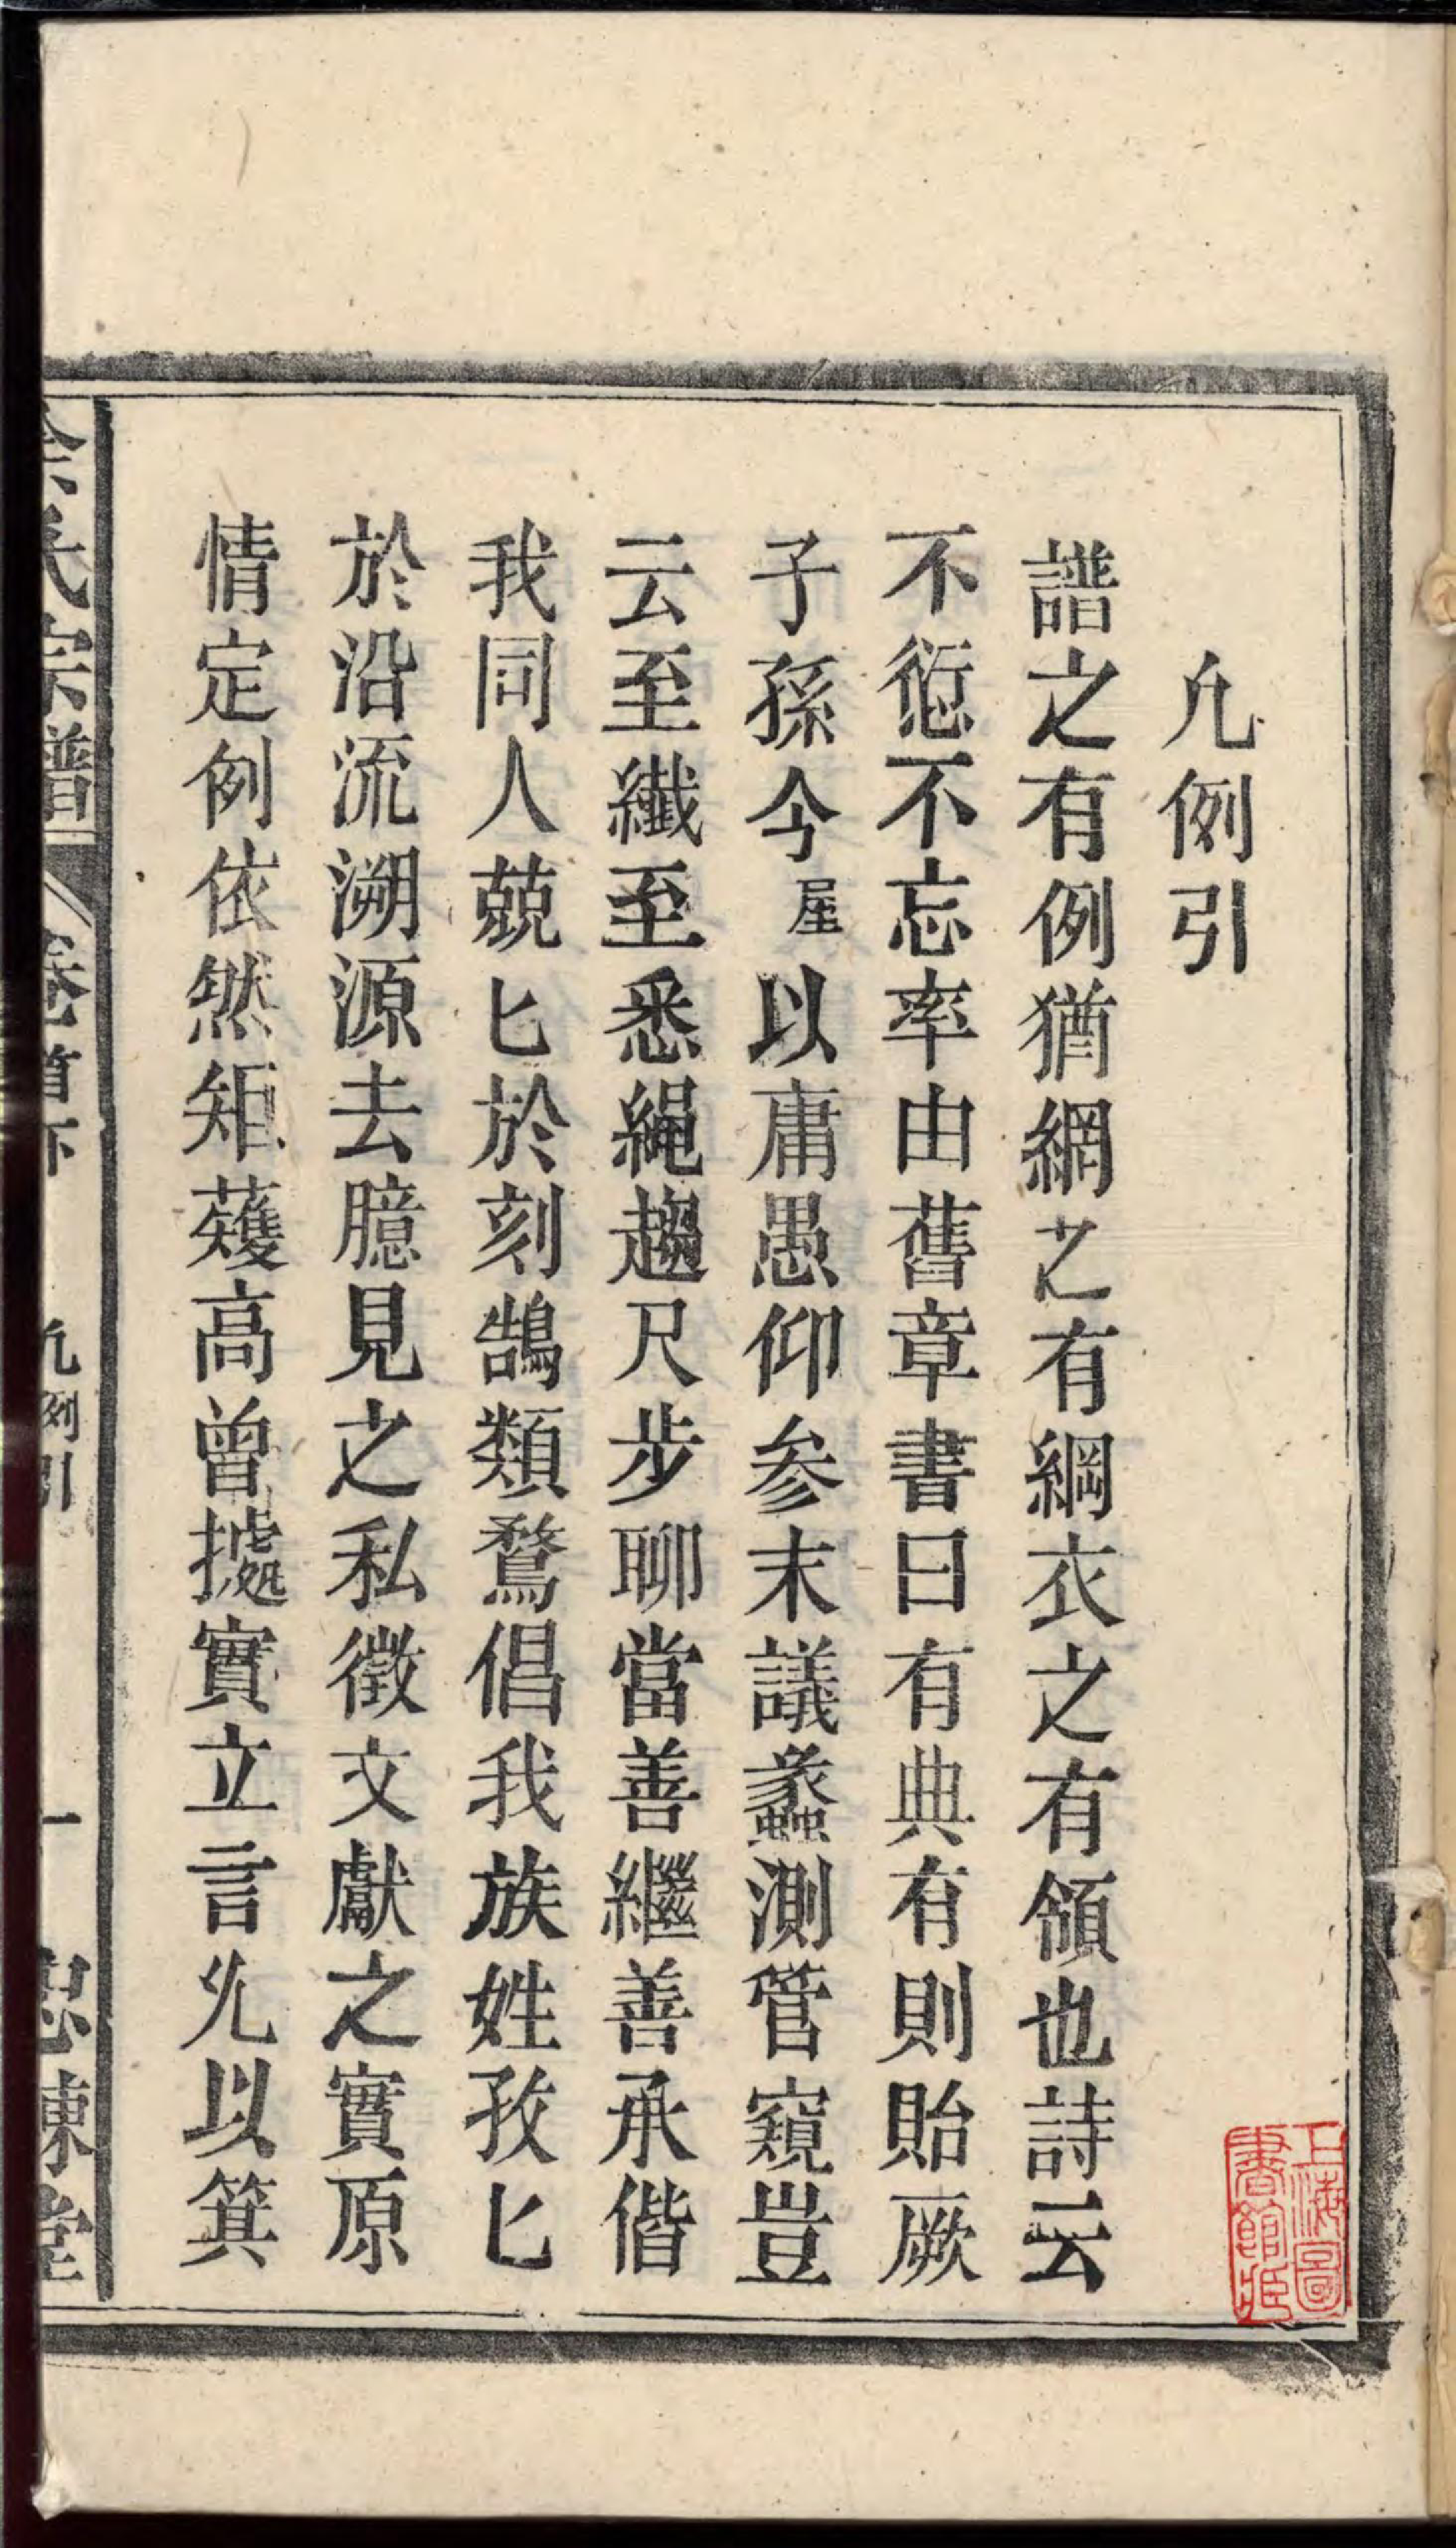 凢例引
譜之有例猶網之有綱衣之有領也詩云
不愆不忘率由舊章書曰有典有則貽厥
子孫今屋以庸愚仰参末議蠡測管窺豈
云至纖至悉繩趨尺步聊當善繼善承偕
我同人兢匕於刻鵠類鶩倡我族姓孜匕
於沿流溯源去臆見之私徵文獻之實原
情定例依然矩蒦高曾據實立言允以箕
余氏宗譜 卷首下 凢例引 一 忠諫堂
上海圖
書館藏